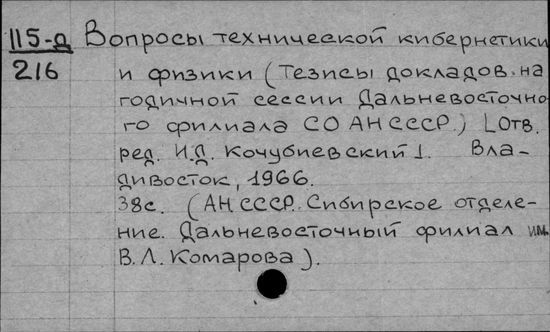 115-д Вопросы технической кибернетики
216 и физики (Тезисы докладов на
годичной сессии Дальневосточно-
го филиала СО АН СССР.) [Отв.
ред. И.Д. Кочубиевский]. Вла-
дивосток, 1966.
38с. (АН СССР. Сибирское отделе-
ние. Дальневосточный филиал им.
В.Л. Комарова).